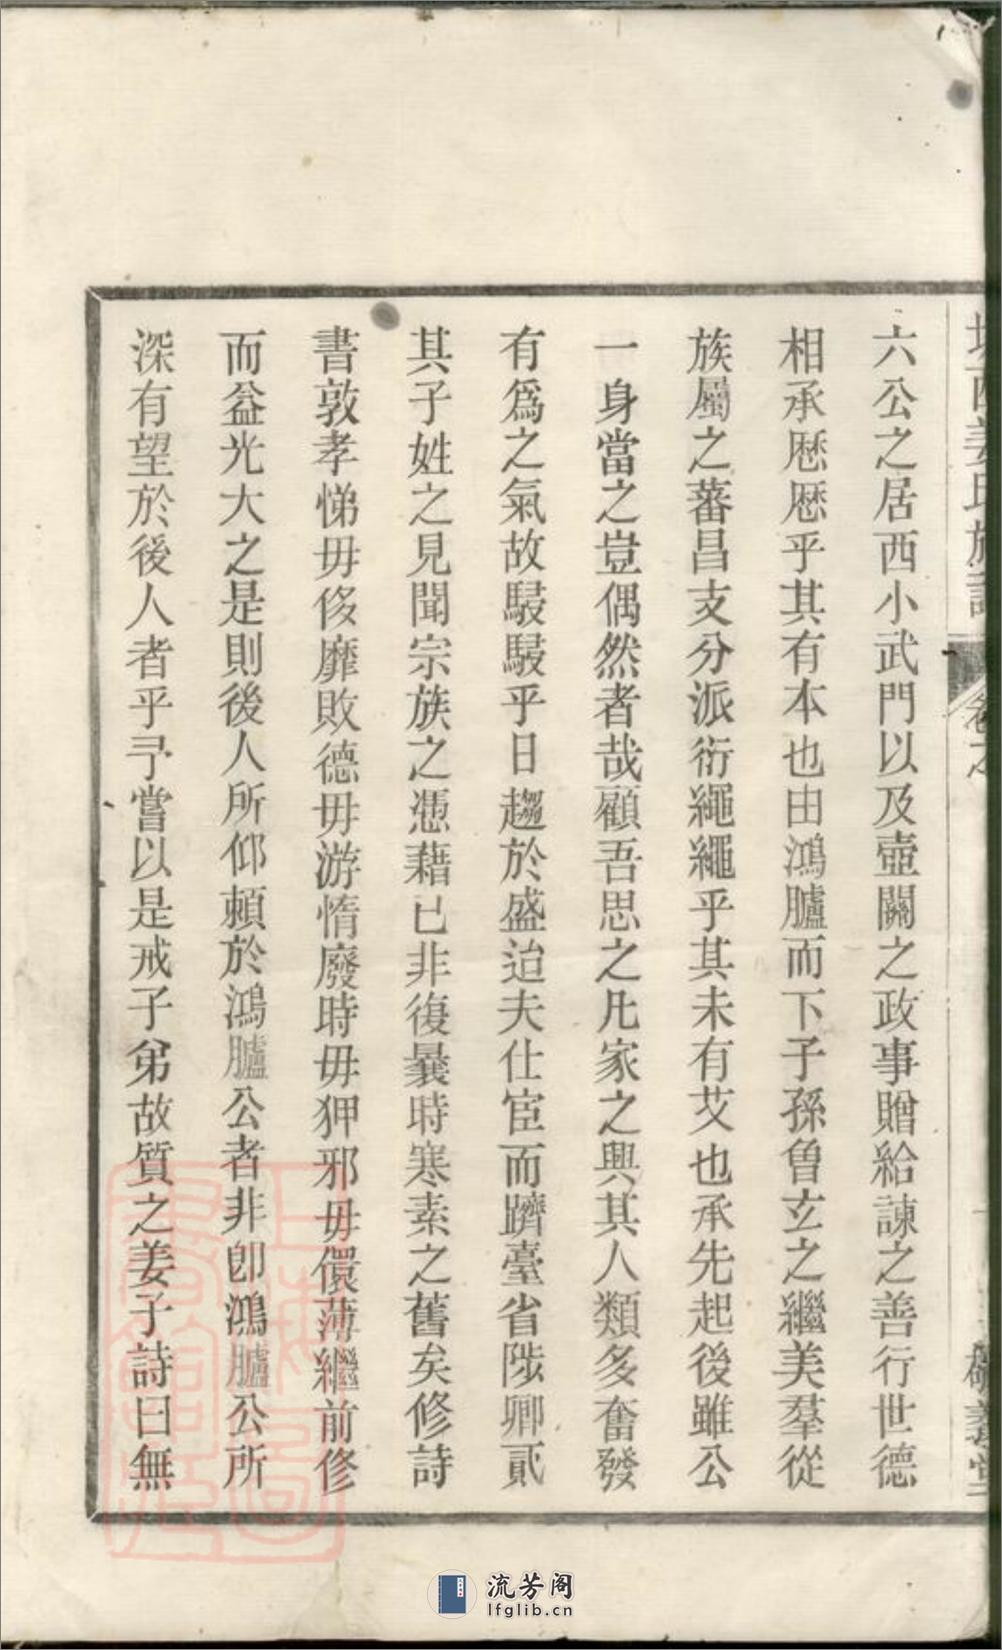 六公之居西小武門以及壺關之政事贈給諫之善行世德
相承歷歷乎其有本也由鴻臚而下子孫曾玄之繼美羣從
族屬之蕃昌支分派衍繩繩乎其未有艾也承先起後雖公
一身當之豈偶然者哉顧吾思之凡家之興其人類多奮發
有爲之氣故駸駸乎日趨於盛迨夫仕宦而躋臺省陟卿貳
其子姓之見聞宗族之憑藉已非復曩時寒素之舊矣修詩
書敦孝悌毋侈靡敗德毋游惰廢時毋狎邪毋儇薄繼前修
而益光大之是則後人所仰賴於鴻臚公者非卽鴻臚公所
深有望於後人者乎予嘗以是戒子弟故質之姜子詩曰無
流芳阁
lfglib.cn